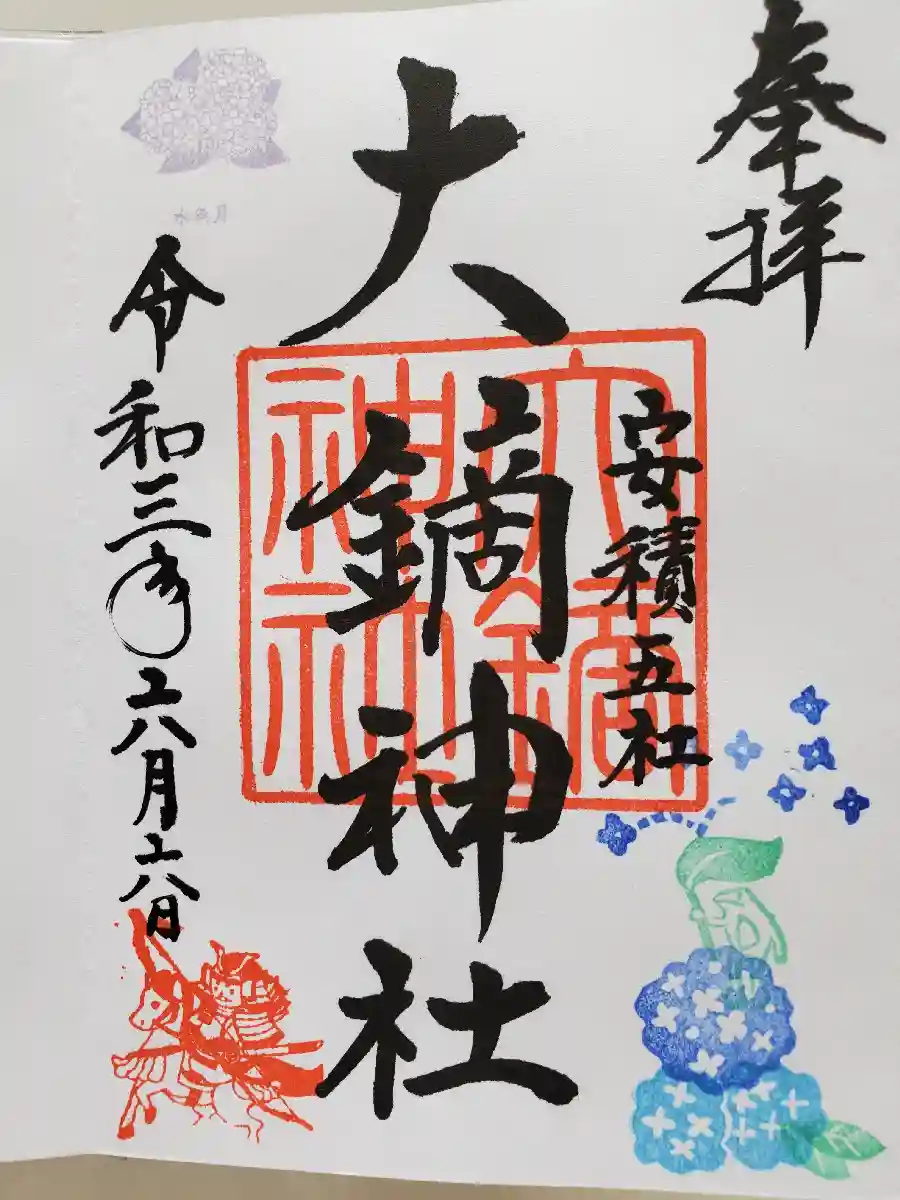 奉拝
安積五社
大鏑神社
大鏑
神社
令和三年六月六日
水無月